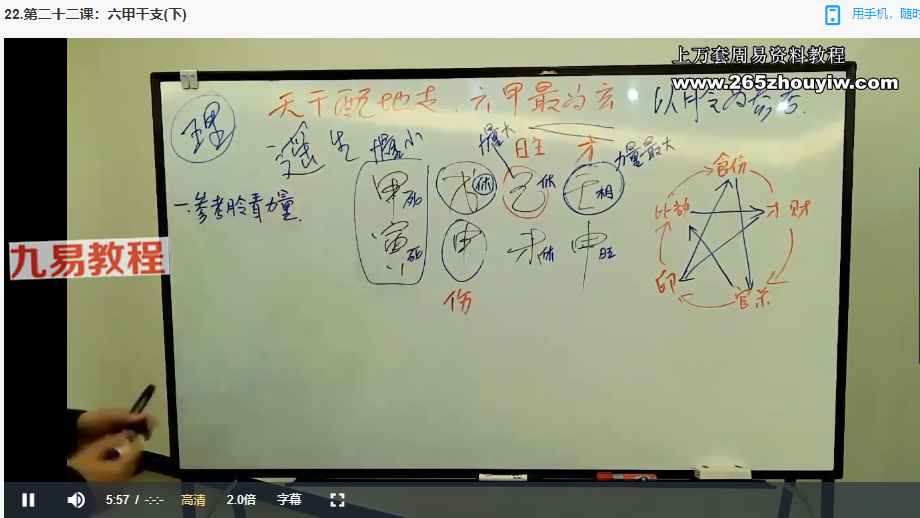 22.第二十二课：六甲干支(下)
用手机，随时
上万套周易资料教程
www.265zhouyiw.com
天干配地支.六甲最为玄
以月令为参考.
理
日主 才
力量最大
一.参考月令看力量.
甲死 戊休 己休 壬相
寅死 申 未休 申旺
伤
食伤
比劫 才财
印 官杀
九易教程
5:57 / -:-:- 高清 2.0倍 字幕